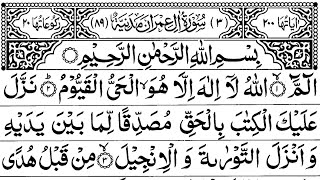 اٰیَاتُهَا ۲۰۰ (۳) سُوْرَةُ اٰلِ عِمْرٰنَ مَدَنِیَّةٌ (۸۹) رُکُوْعَاتُهَا ۲۰
بِسْمِ اللهِ الرَّحْمٰنِ الرَّحِیْمِ
الٓمّٓ ۙ﴿۱﴾ اللهُ لَاۤ اِلٰهَ اِلَّا هُوَ الْحَیُّ الْقَیُّوْمُ ؕ﴿۲﴾ نَزَّلَ
عَلَیْكَ الْکِتٰبَ بِالْحَقِّ مُصَدِّقًا لِّمَا بَیْنَ یَدَیْهِ
وَ اَنْزَلَ التَّوْرٰىةَ وَ الْاِنْجِیْلَ ۙ﴿۳﴾ مِنْ قَبْلُ هُدًی